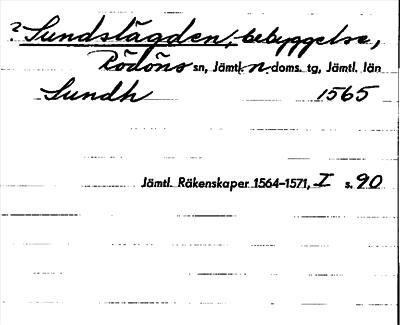 ? Sundslägden, bebyggelse,
Rödöns sn, Jämtl. n. doms. tg, Jämtl. län
Sundh 1565
Jämtl. Räkenskaper 1564–1571, I s. 90